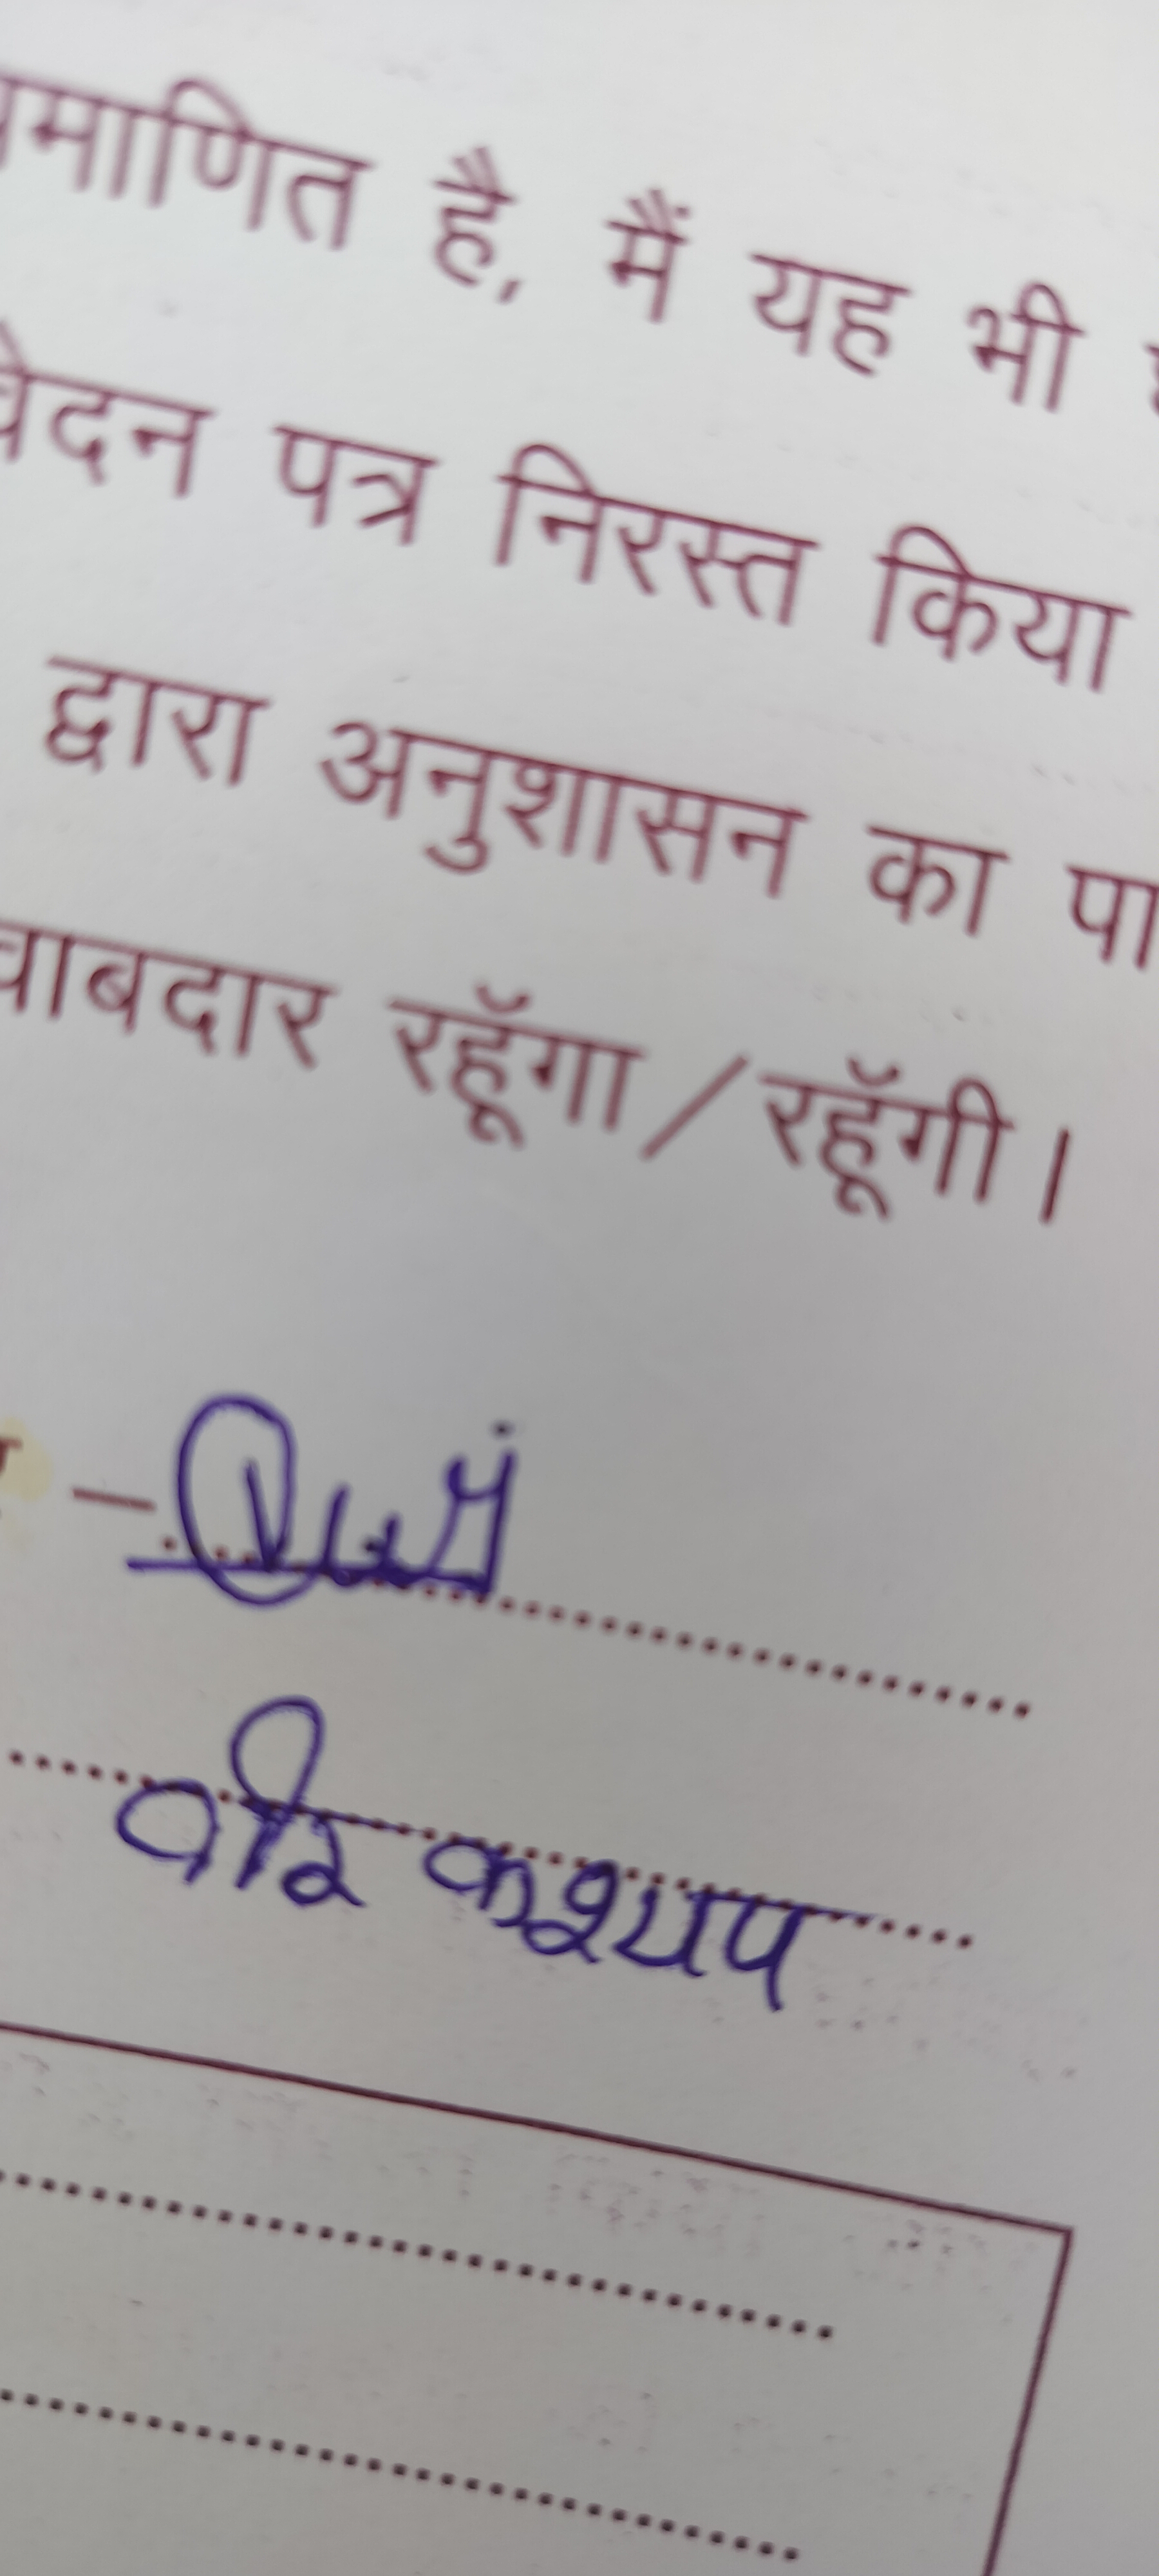 प्रमाणित है, मैं यह भी
वेदन पत्र निरस्त किया
द्वारा अनुशासन का पा
वाबदार रहूँगा/रहूँगी।
वीर कश्यप